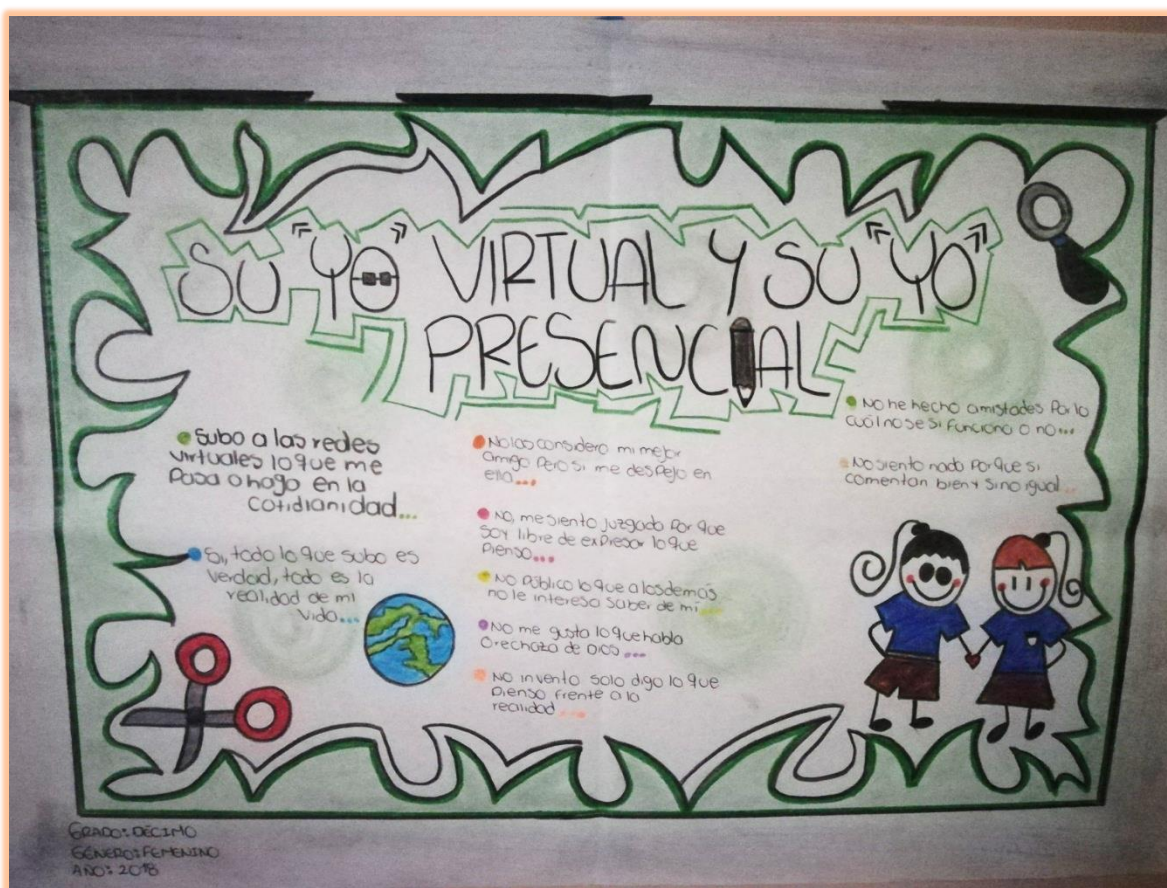 SU "YO" VIRTUAL Y SU "YO"
PRESENCIAL
Subo a las redes
virtuales lo que me
Pasa o hago en la
cotidianidad...
Si, todo lo que subo es
verdad, todo es la
realidad de mi
vida...
No las considero mi mejor
amigo pero si me despejo en
ella...
No, me siento juzgado por que
soy libre de expresar lo que
pienso...
No público lo que a los demás
no le interesa saber de mi...
No me gusta lo que habla
o rechaza de DIOS...
No invento solo digo lo que
pienso frente a la
realidad....
No he hecho amistades por lo
cuál no se si funciona o no...
No siento nada porque si
comentan bien y sino igual...
GRADO: DECIMO
GÉNERO: FEMENINO
AÑO: 2018